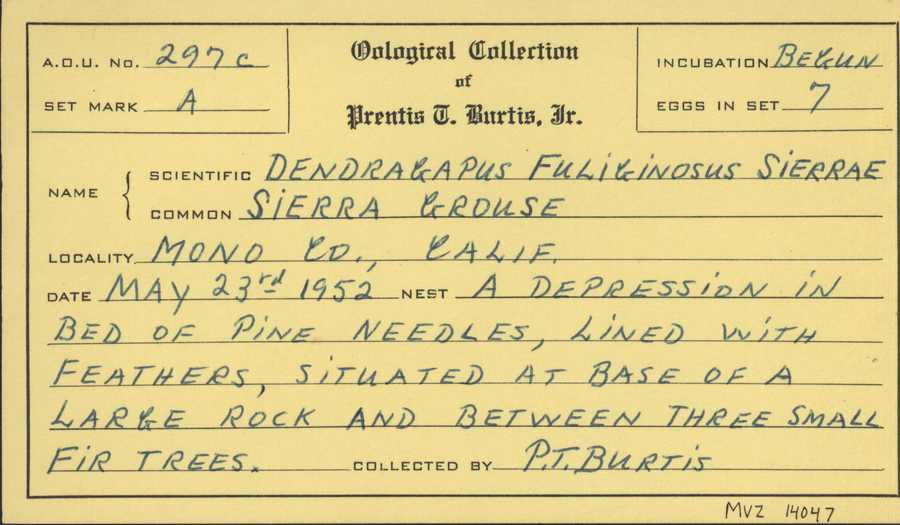 A.O.U. No. 297c
SET MARK A
Oological Collection
of
Prentis T. Burtis, Jr.
INCUBATION BEGUN
EGGS IN SET 7
NAME { SCIENTIFIC DENDRAGAPUS FULIGINOSUS SIERRAE
COMMON SIERRA GROUSE
LOCALITY MONO CO., CALIF.
DATE MAY 23rd 1952 NEST A DEPRESSION IN
BED OF PINE NEEDLES, LINED WITH
FEATHERS, SITUATED AT BASE OF A
LARGE ROCK AND BETWEEN THREE SMALL
FIR TREES. COLLECTED BY P.T. BURTIS
MVZ 14047